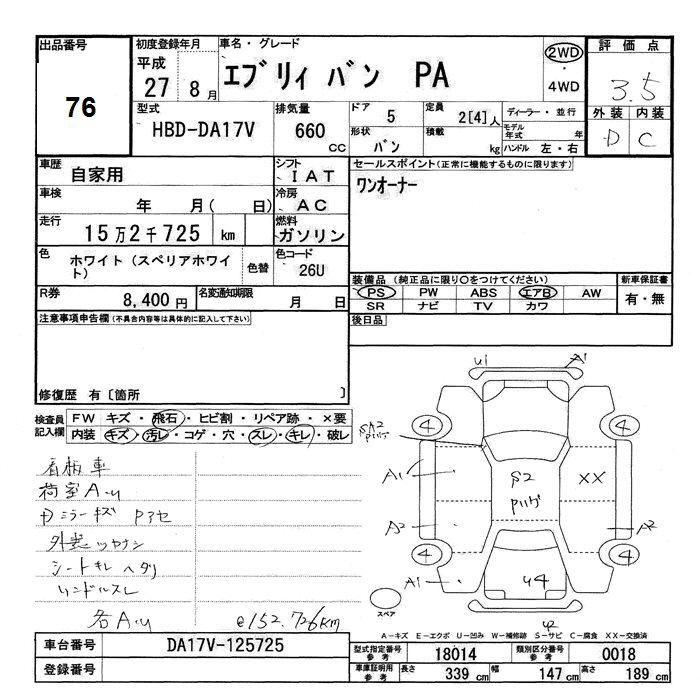 出品番号
76
初度登録年月
平成
27 8月
車名・グレード
エブリィ バン PA
2WD
・
4WD
評価点
3.5
外装 内装
D C
型式
HBD-DA17V
排気量
660 cc
ドア 5
形状 バン
定員 2[4]人
積載 kg
ディーラー・並行
モデル年式 年
ハンドル 左・右
車歴 自家用
シフト IAT
車検 年 月( 日)
冷房 AC
走行 15万2千725 km
燃料 ガソリン
色 ホワイト(スペリアホワイト)
色替
色コード 26U
R券 8,400円
名変通知期限 月 日
セールスポイント(正常に機能するものに限ります)
ワンオーナー
装備品(純正品に限り○をつけてください)
PS PW ABS エアB AW
SR ナビ TV カワ
新車保証書
有・無
後日品
注意事項申告欄(不具合内容等は具体的に記入して下さい)
修復歴 有〔箇所 〕
検査員記入欄
FW キズ・飛石・ヒビ割・リペア跡・×要
内装 キズ・汚レ・コゲ・穴・スレ・キレ・破レ
看板車
荷室A.u
Dミラーキズ Pアセ
外装ツヤナシ
シートキレ ヘタリ
ハンドルスレ
各A.u
@152,726km
U1 A1
4 4
A1
S2
XX
A2
A2
4 4
A1
U4
スペア
A-キズ E-エクボ U-凹み W-補修跡 S-サビ C-腐食 XX-交換済
車台番号 DA17V-125725
登録番号
型式指定番号 参考 18014
類別区分番号 参考 0018
車庫証明用 参考 長さ 339 cm 幅 147 cm 高さ 189 cm